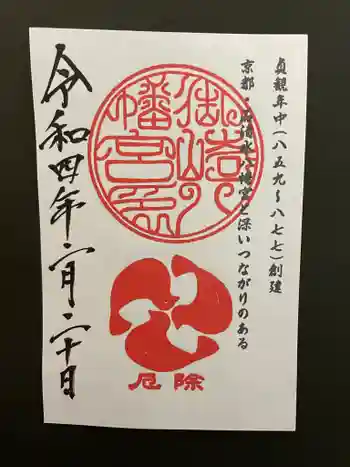 貞観年中(八五九〜八七七)創建
京都・石清水八幡宮と深いつながりのある
厄除
令和四年二月二十日